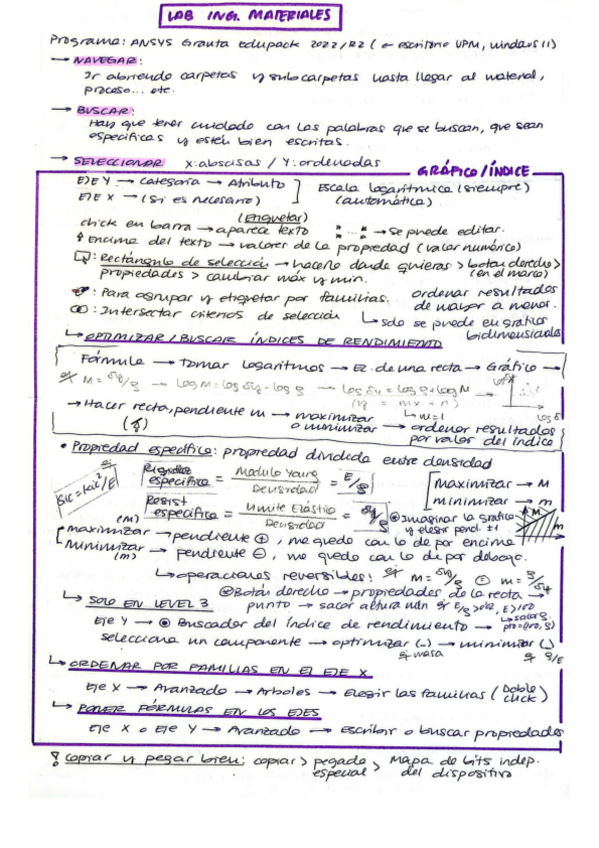 LAB ING. MATERIALES
Programa: ANSYS Granta Edupack 2022/R2 (← escritorio UPM, windows 11)
→ NAVEGAR:
Ir abriendo carpetas y subcarpetas hasta llegar al material,
proceso... etc.
→ BUSCAR:
Hay que tener cuidado con las palabras que se buscan, que sean
específicas y estén bien escritas.
→ SELECCIONAR X: abscisas / Y: ordenadas
GRÁFICO/ÍNDICE
EJE Y → Categoría → Atributo
EJE X → (Si es necesario)
Escala logarítmica (siempre)
(automática)
(Etiquetar)
click en barra → aparece texto → se puede editar.
↑ Encima del texto → valores de la propiedad (valor numérico)
: Rectángulo de selección → hacerlo donde quieras > botón derecho >
(en el marco)
propiedades > cambiar máx y min.
: Para agrupar y etiquetar por familias.
: Intersectar criterios de selección
ordenar resultados
de mayor a menor.
↳ solo se puede en gráficos
bidimensionales
↳ OPTIMIZAR/BUSCAR ÍNDICES DE RENDIMIENTO
Fórmula → Tomar logaritmos → Ec. de una recta → Gráfico →
→ log M = log σy - log ρ → log σy = log ρ + log M
(y = mx + n)
↳ m=1
→ Hacer recta, pendiente m → maximizar
o minimizar → ordenar resultados
por valor del índice
• Propiedad específica: propiedad dividida entre densidad
Rigidez
específica = Módulo Young / Densidad = E/ρ
Resist
específica = Límite Elástico / Densidad = σy/ρ
maximizar → M
minimizar → m
Imaginar la gráfica
y elegir pend. ±1
maximizar (M) → pendiente ⊕, me quedo con lo de por encima
minimizar (m) → pendiente ⊖, me quedo con lo de por debajo.
↳ operaciones reversibles: ej M = σy/ρ m = ρ/σy
Botón derecho → propiedades de la recta →
punto → sacar altura
↳ SOLO EN LEVEL 3
Eje Y → Buscador del índice de rendimiento →
selecciona un componente → optimizar (_) → minimizar (_)
ej masa ej ρ/E
↳ ORDENAR POR FAMILIAS EN EL EJE X
Eje X → Avanzado → Árboles → Elegir las familias (Doble
click)
↳ PONER FÓRMULAS EN LOS EJES
Eje X o Eje Y → Avanzado → Escribir o buscar propiedades
! Copiar y pegar bien: copiar > pegado
especial > Mapa de bits indep.
del dispositivo